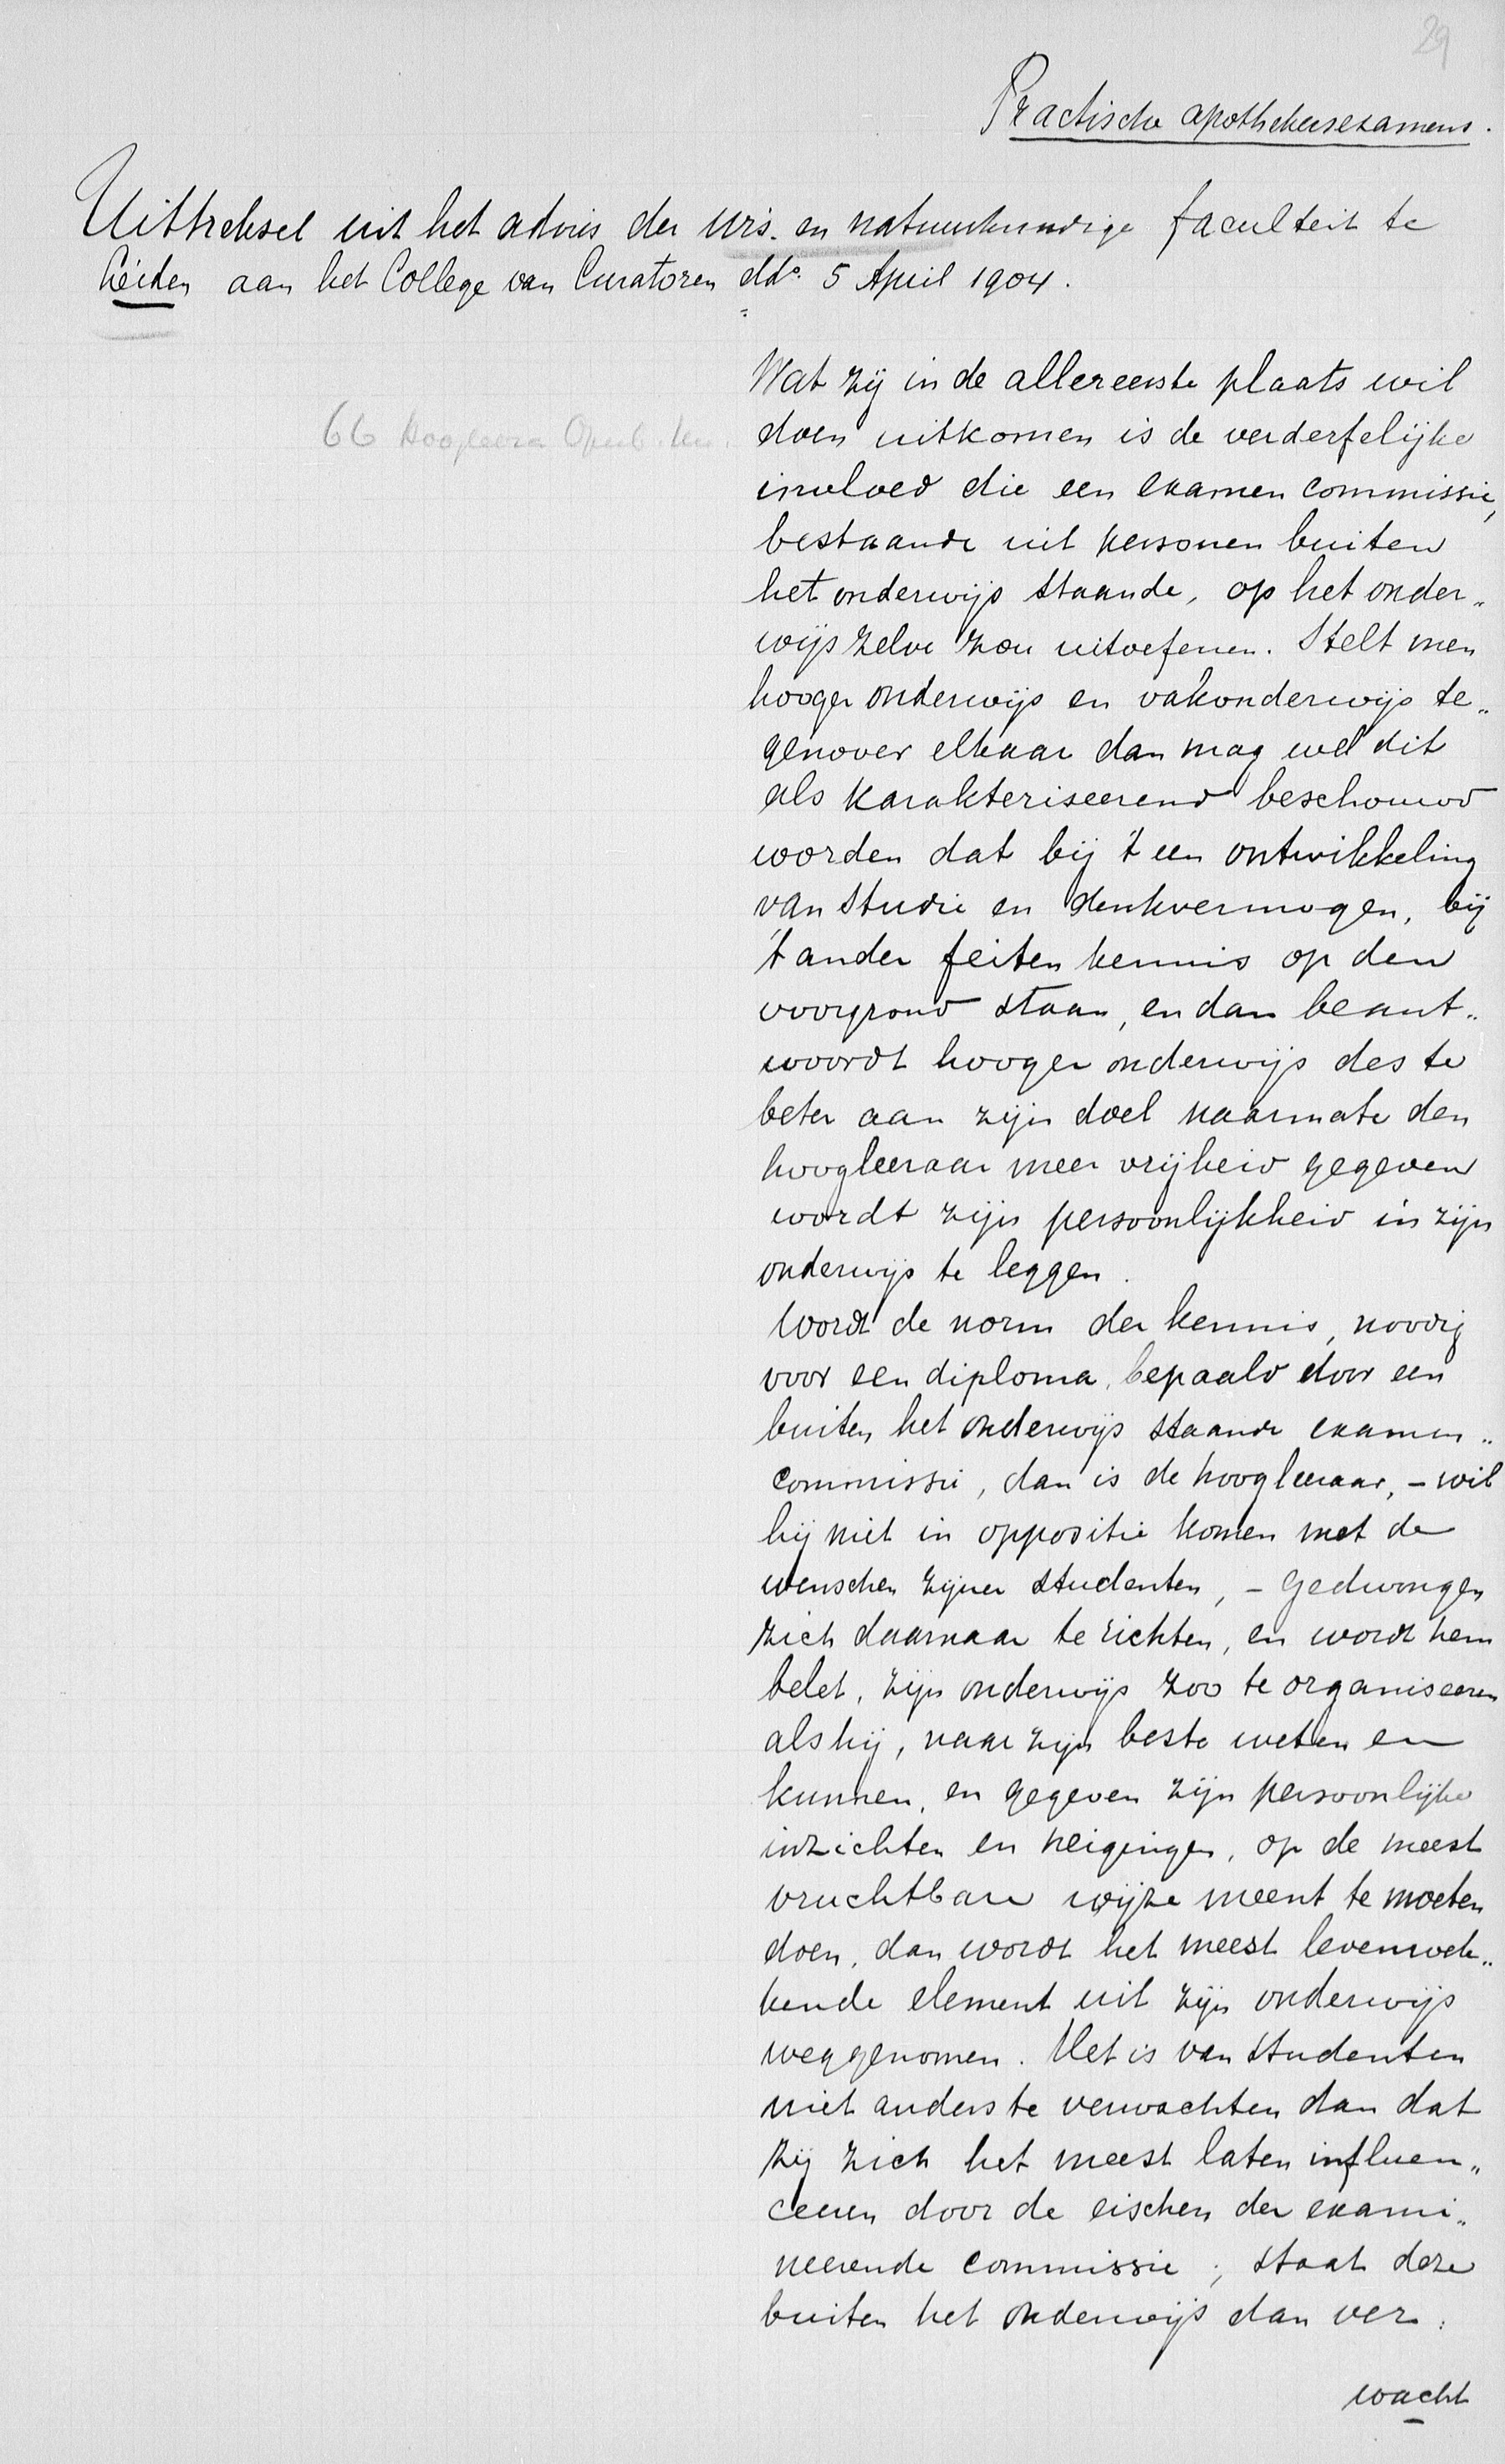 29
Practische apothekersexamens.
Uittreksel uit het advies der wis- en natuurkundige faculteit te
Leiden aan het College van Curatoren dd° 5 April 1904.
Wat zij in de allereerste plaats wil
66 Hoogleera
doen uitkomen is de verderfelijke
invloed die een examen commissie,
bestaande uit personen buiten
het onderwijs staande, op het onder„
wijs zelve zou uitoefenen. Stelt men
hooger onderwijs en vakonderwijs te„
genover elkaar dan mag wel dit
als karakteriseerend beschouwd
worden dat bij 't een ontwikkeling
van studie en denkvermogen, bij
't ander feiten kennis op den
voorgrond staan, en dan beant„
woordt hooger onderwijs des te
beter aan zijn doel naarmate den
hoogleeraar meer vrijheid gegeven
wordt zijn persoonlijkheid in zijn
onderwijs te leggen.
Wordt de norm der kennis, noodig
voor een diploma, bepaald door een
buiten het onderwijs staande examen„
commissie, dan is de hoogleeraar, - wil
hij niet in oppositie komen met de
wenschen zijner studenten, - gedwongen
zich daarnaar te richten, en wordt hem
belet, zijn onderwijs zoo te organiseeren
als hij, naar zijn beste weten en
kunnen, en gegeven zijn persoonlijke
inzichten en neigingen, op de meest
vruchtbare wijze meent te moeten
doen, dan wordt het meest levenwek„
kende element uit zijn onderwijs
weggenomen. Het is van studenten
niet anders te verwachten dan dat
zij zich het meest laten influen„
ceeren door de eischen der exami„
neerende commissie; staat deze
buiten het onderwijs dan ver„
wacht